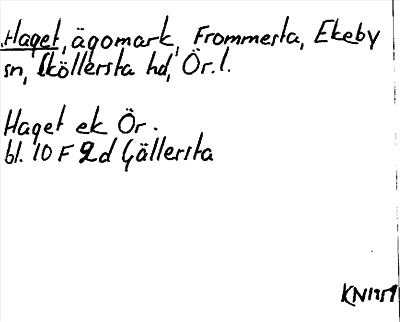 Haget, ägomark, Frommesta, Ekeby
sn, Sköllersta hd, Ör. l.
Haget ek Ör.
bl. 10 F 2d Gällersta
KN1959